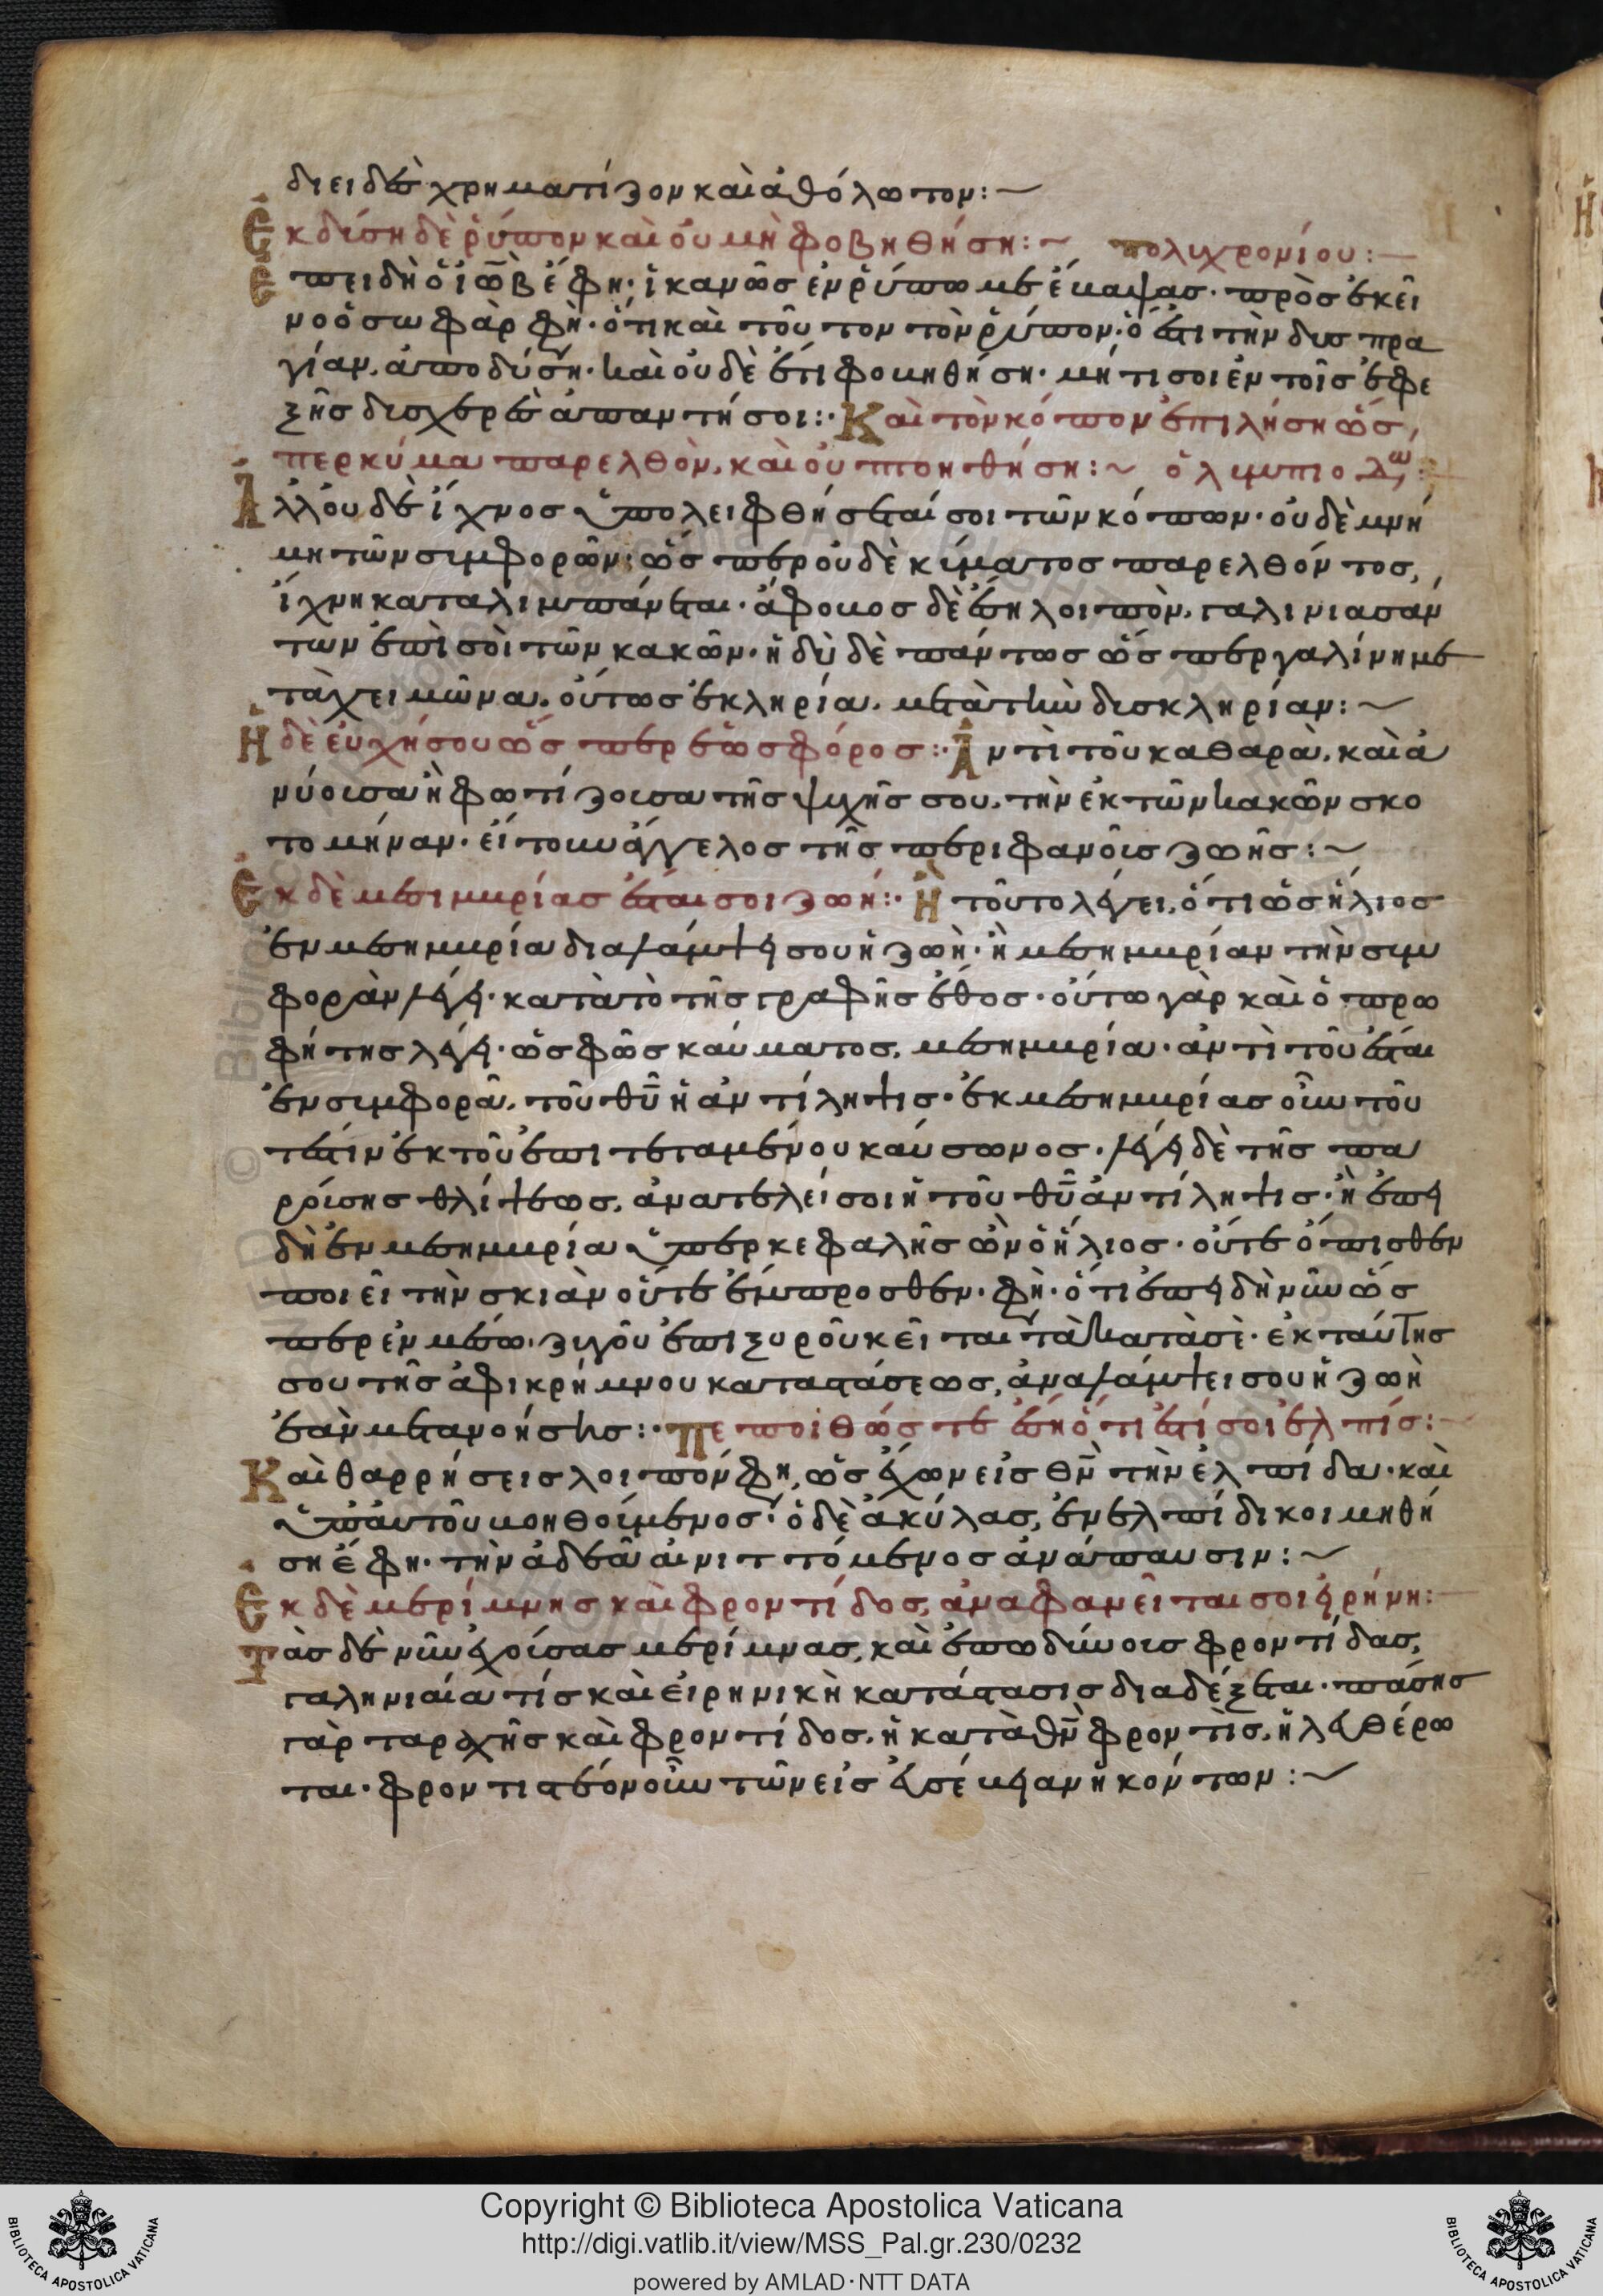 διειδὲς χρηματίζον καὶ ἀθόλωτον:~
Ἐκδύσῃ δὲ ῥύπον καὶ οὐ μὴ φοβηθήσῃ:~ πολυχρονίου:—
Ἐπειδὴ ὁ ἰὼβ ἔφη· ἱκανῶς ἐν ῥύπῳ με ἔβαψας· πρὸς ἐκεῖ
νο ὁ σωφὰρ φη· ὅτι καὶ τοῦτον τὸν ῥύπον, ὅ ἐστι τὴν δυσπρα
γίαν, ἀποδύσῃ· καὶ οὐδὲ ἔτι φοβηθήσῃ· μή τί σοι ἐν τοῖς ἐφε
ξῆς δυσχερὲς ἀπαντήσοι:· Καὶ τὸν κόπον ἐπιλήσῃ ὥσ
περ κῦμα παρελθὸν, καὶ οὐ πτοηθήσῃ:~ ὀλυμπιοδω:
Ἀλλ' οὐδὲ ἴχνος ὑπολειφθήσεταί σοι τῶν κόπων· οὐδὲ μνή
μη τῶν συμφορῶν· ὥσπερ οὐδὲ κύματος παρελθόντος,
ἴχνη καταλιμπάνεται· ἄφοβος δὲ ἔσῃ λοιπὸν, γαληνιασάν
των ἐπὶ σοὶ τῶν κακῶν· ἡδὺ δὲ πάντως ὥσπερ γαλήνη με
τὰ χειμῶνα, οὕτως εὐκληρία, μετὰ τὴν δυσκληρίαν:~
Ἡ δὲ εὐχή σου ὥσπερ ἑωσφόρος:· Ἀντὶ τοῦ καθαρὰ, καὶ ἀ
νύουσα ἢ φωτίζουσα τῆς ψυχῆς σου, τὴν ἐκ τῶν κακῶν σκο
τομήναν· εἴτουν ἄγγελος τῆς περιφανοῦς ζωῆς:~
Ἐκ δὲ μεσημβρίας ἔσται σοι ζωή:· Ἢ τοῦτο λέγει, ὅτι ὡς ἥλιος
ἐν μεσημβρία διαλάμψει σου ἡ ζωὴ· ἢ μεσημβρίαν τὴν συμ
φορὰν λέγει· κατὰ τὸ τῆς γραφῆς ἔθος· οὕτω γὰρ καὶ ὁ προ
φήτης λέγει· ὡς φῶς καύματος, μεσημβρία· ἀντὶ τοῦ ἔσται
ἐν συμφορᾶ, τοῦ θῦ ἡ ἀντίληψις· ἐκ μεσημβρίας οὖν του
τέστιν ἐκ τοῦ ἐπιτεταμένου καύσωνος· λέγει δὲ τῆς πα
ρούσης θλίψεως, ἀνατελεῖ σοι ἡ τοῦ θῦ ἀντίληψις· ἢ ἐπει
δὴ ἐν μεσημβρία ὑπὲρ κεφαλῆς ὢν ὁ ἥλιος· οὔτε ὄπισθεν
ποιεῖ τὴν σκιὰν οὔτε ἔμπροσθεν· φη· ὅτι ἐπειδὴ νῦν ὥσ
περ ἐν μέσω ζυγοῦ ἐπὶ ξυροῦ κεῖται τὰ κατὰ σὲ· ἐκ ταύτης
σου τῆς ἀφικρημνου καταστάσεως, ἀναλάμψει σου ἡ ζωὴ
ἐὰν μετανοήσῃς:· Πεποιθώς τε ἔσῃ ὅτι ἐστί σοι ἐλπίς:
Καὶ θαρρήσεις λοιπόν φη, ὡς ἔχων εἰς θν τὴν ἐλπίδα· καὶ
ὑπ' αὐτοῦ βοηθούμενος· ὁ δὲ ἀκύλας, ἐν ἐλπίδι κοιμηθή
σῃ ἔφη· τὴν ἀδεᾶ αἰνιττόμενος ἀνάπαυσιν:~
Ἐκ δὲ μερίμνης καὶ φροντίδος, ἀναφανεῖταί σοι εἰρήνη:
Τὰς δὲ νῦν ἐχούσας μερίμνας, καὶ ἐπωδύνους φροντίδας,
γαληνιαία τίς καὶ εἰρηνικὴ κατάστασις διαδέξεται· πάσης
γὰρ ταραχῆς καὶ φροντίδος, ἡ κατὰ θν φροντὶς, ἠλευθέρω
ται· φροντιστέον οὖν τῶν εἰς εὐσέβειαν ἡκόντων:~
Copyright © Biblioteca Apostolica Vaticana
http://digi.vatlib.it/view/MSS_Pal.gr.230/0232
powered by AMLAD·NTT DATA
BIBLIOTECA APOSTOLICA VATICANA
BIBLIOTECA APOSTOLICA VATICANA